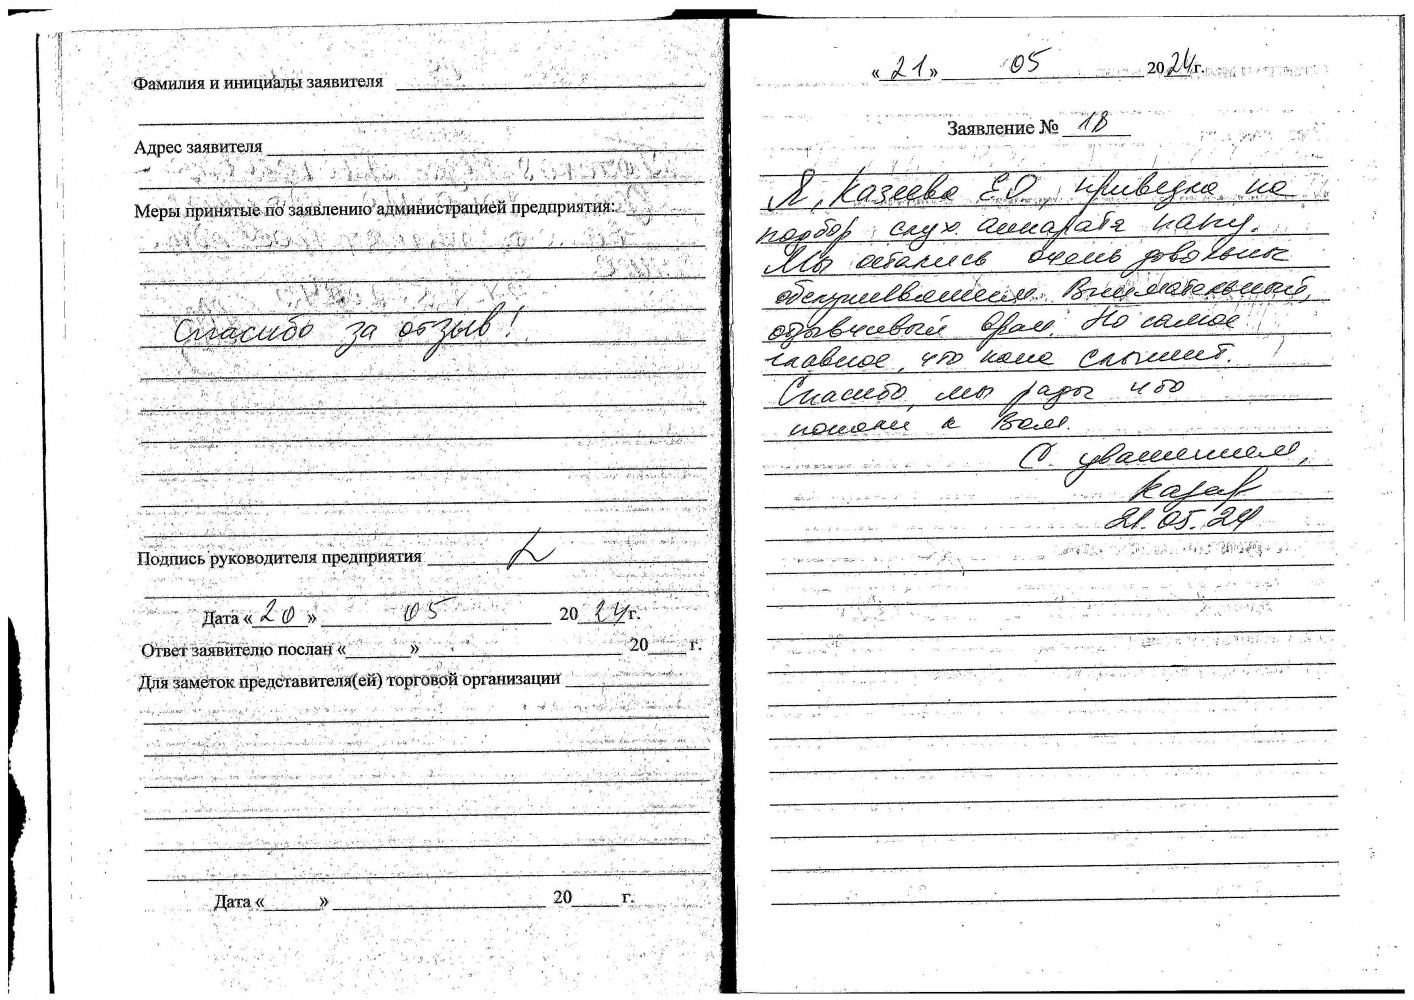 Фамилия и инициалы заявителя
Адрес заявителя
Меры принятые по заявлению администрацией предприятия:
Спасибо за отзыв!
Подпись руководителя предприятия
Дата «20» 05 2024г.
Ответ заявителю послан «    » 20    г.
Для заметок представителя(ей) торговой организации
Дата «    » 20    г.
«21» 05 2024г.
Заявление № 18
Я, Казеева Е.О, привезла на
подбор слух. аппарата папу.
Мы остались очень довольны
обслуживанием. Внимательный,
отзывчивый врач. Но самое
главное, что папа слышит.
Спасибо, мы рады что
попали к Вам.
С уважением,
21.05.24